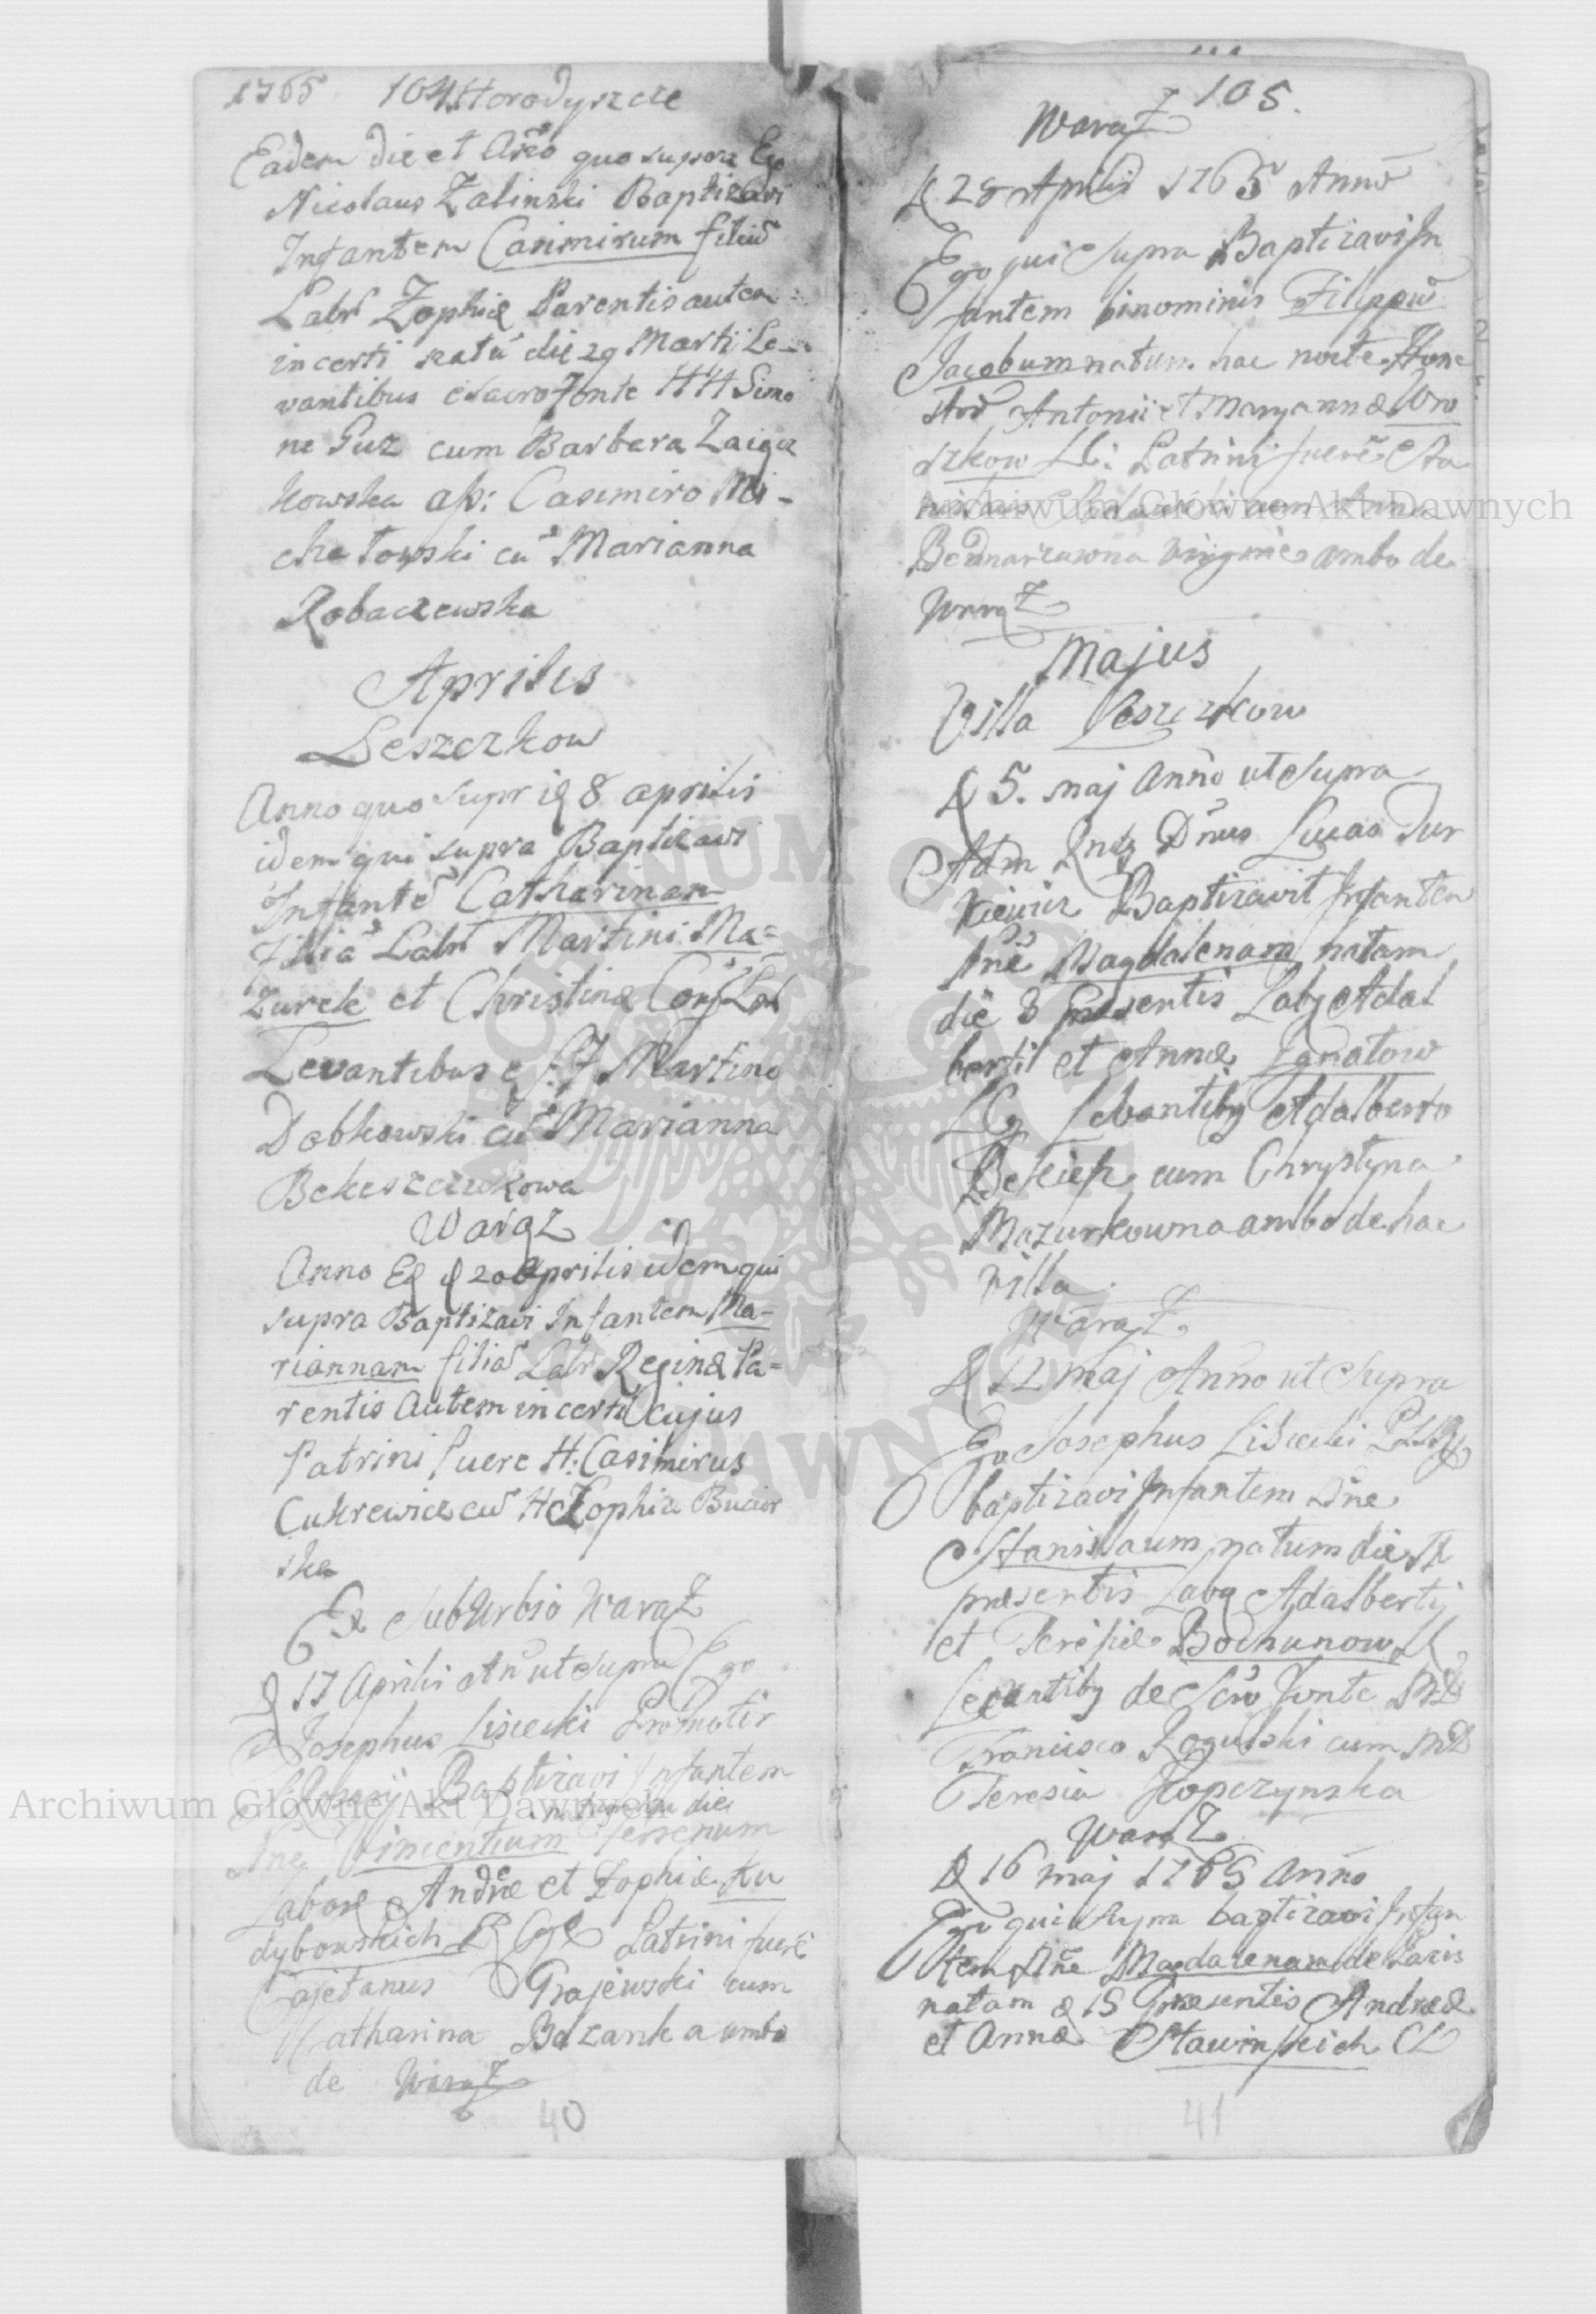 1765 104 Horodyszcze
Eadem die et Anño quo supra Ego
Nicolaus Zalinski Baptizavi
Infantem Casimirum filiũ
Labr Zophiæ Parentis autem
incerti natũ die 29 Martij Le-
vantibus e sacro fonte HH Simo
ne Guz cum Barbara Zaiga
kowska aſs: Casimiro Mi-
chałowski cũ Marianna
Robaczewska
Aprilis
Leszczkow
Anno quo supr 8 aprilis
idem qui supra Baptizavi
Infantẽ Catharinam
filiã Labr Martini Ma=
zurek et Christinæ Conj
Levantibus e S. F Martino
Dobkowski cũ Marianna
Bekeszczukowa
Waręz
Anno Eq d 20 aprilis idem qui
supra Baptizavi Infantem Ma-
riannam filiã Labr Reginæ Pa=
rentis Autem incerti Cujus
Patrini fuere H: Casimirus
Cukrewicz cũ H Zophia Bucior
ska
Ex SubUrbio Waręz
d 17 Aprilis An ut supra Ego
Josephus Lisiecki Promotor
Baptizavi Infantem
natum hu die
Vincentium
Labor Andræ et Zophiæ Ku
dybowskich Patrini fuerẽ
Cajetanus Grajewski cum
Catharina Bazanka ambo
de Waręz
40
105.
Waręz
d 28 Aprilis 1765 Anno
Ego qui supra Baptizavi In
fantem binominis Filippũ
Jacobum natum hac nocte Hone
stor Antonii et Maryannæ Wo
szkow Patrini fuerẽ Sta
nislaus cum Anna
Bednarzowna virgine ambo de
Waręz
Majus
Villa Leszczkow
d 5. maj Anno ut supra
Adm Rndg Dñus Lucas Tur
kiewicz Baptizavit Infantem
Nñe Magdalenam natam
die 3 præsentis Labg Adal
berti et Annæ Ignatow
LCg Levantibg Adalberto
Bekieſz cum Chrystyna
Mazurkowna ambo de hac
villa
Waręz
d 12 maj Anno ut supra
Ego Josephus Lisiecki
baptizavi Infantem Nñe
Stanislaum natum die
præsentis Labg Adalberti
et Teresiæ Bochunow
Levantibg de Scro Fonte MD
Francisco Rogulski cum MD
Teresia Kopczynska
Waręz
d 16 maj 1765 Anno
Ego qui supra baptizavi Infan
tem Nñe Magdalenam de Paris
natam d 15 præsentis Andreæ
et Annæ Sławinſkich CL
41
Archiwum Główne Akt Dawnych
Archiwum Główne Akt Dawnych